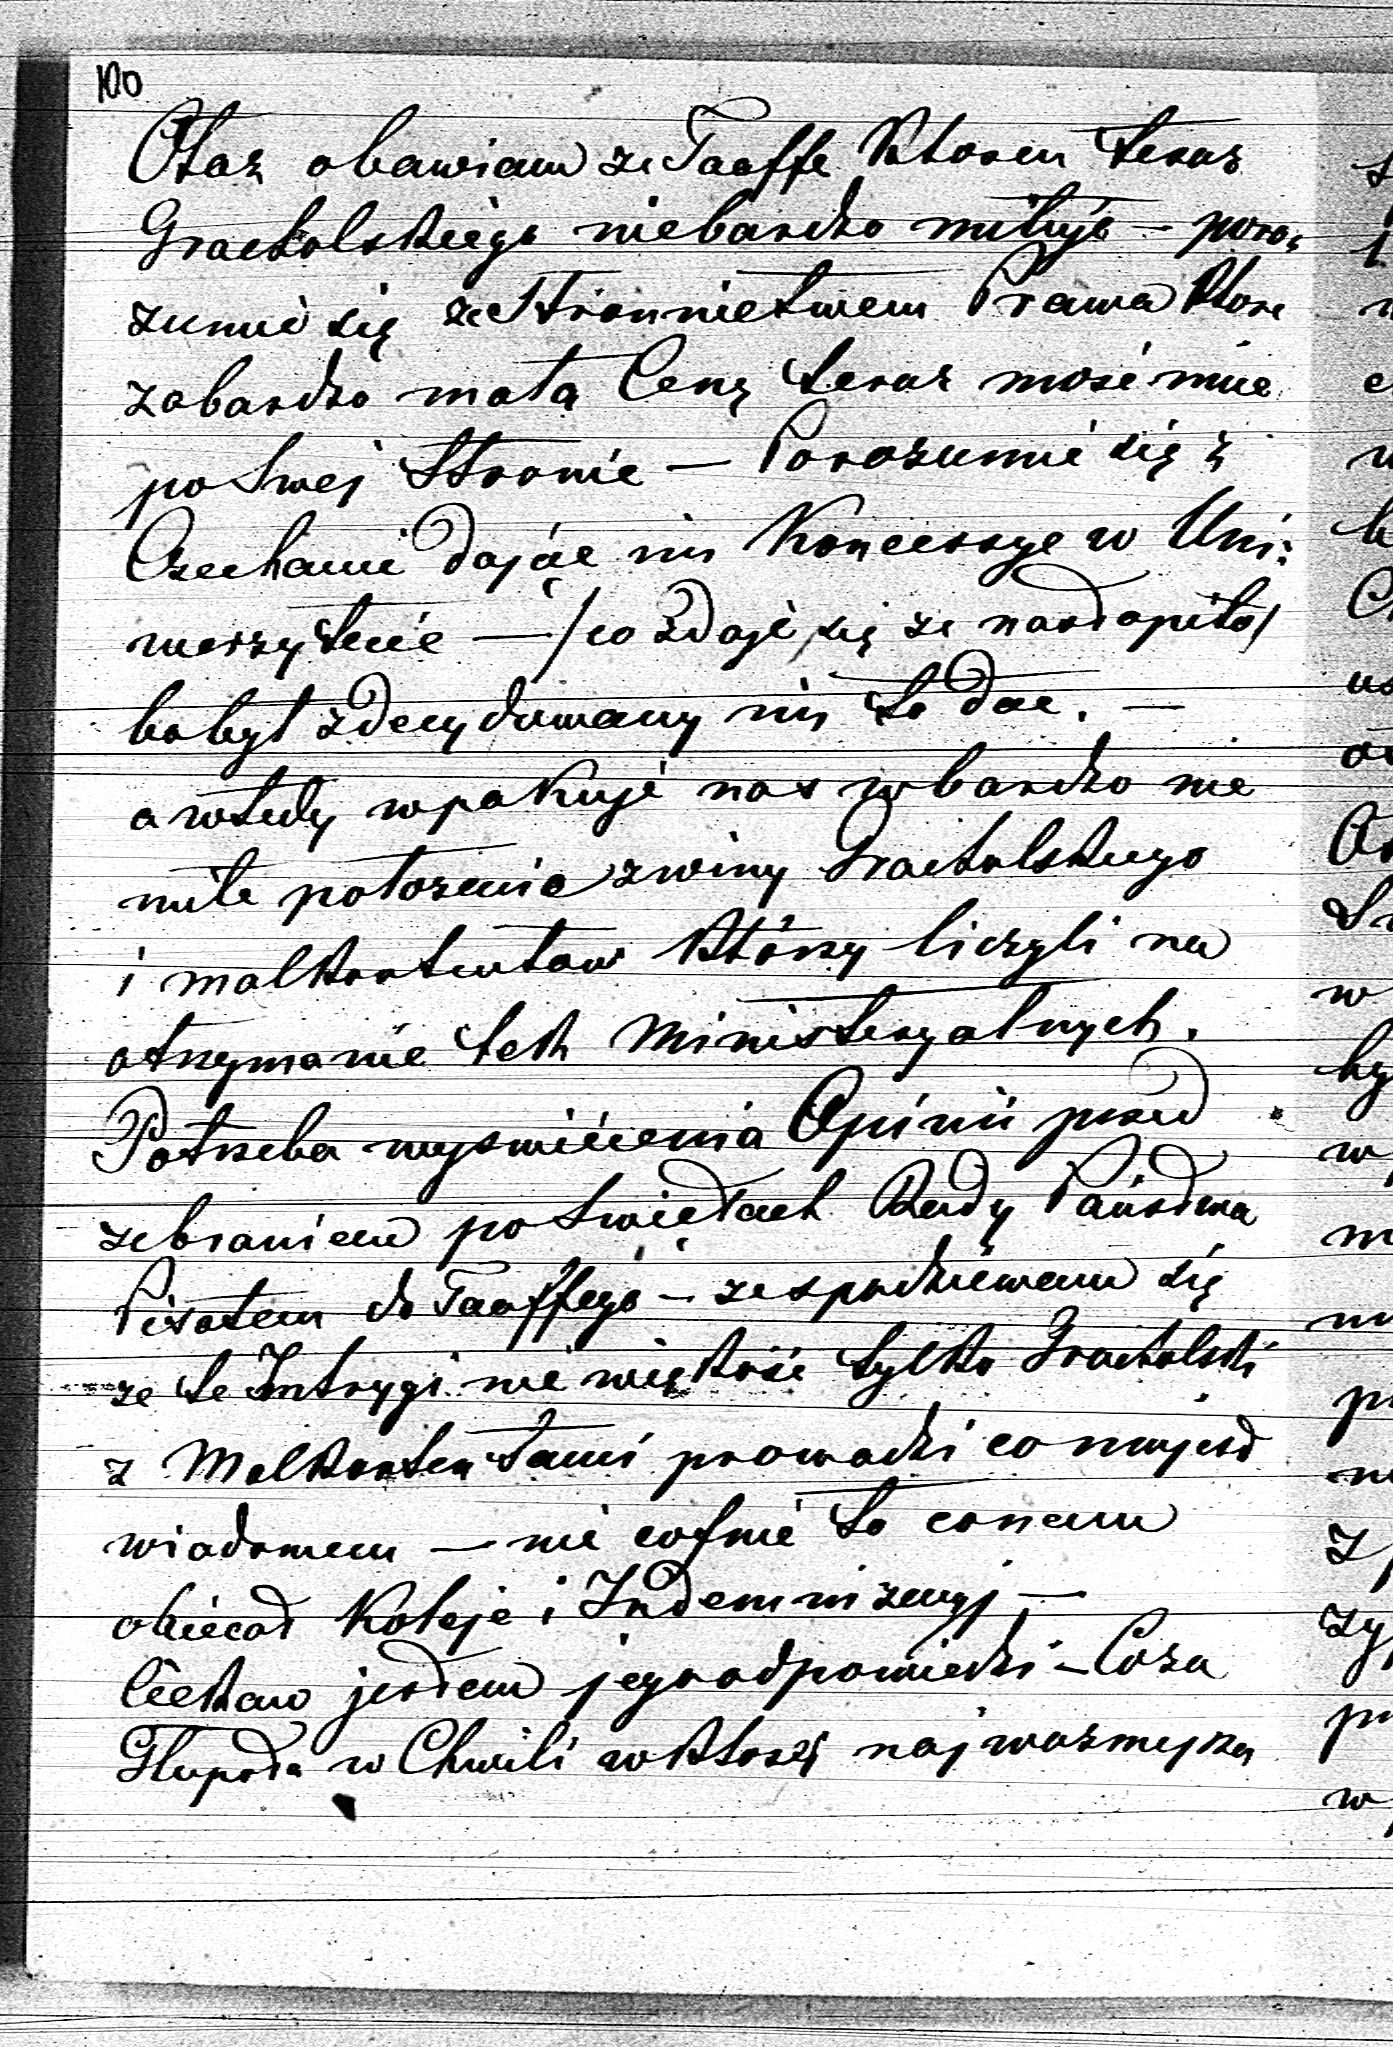 100
Otoz obawiam ze Taaffe Ktoren teraz
Grocholskiego niebardzo miluje — poro,
zumie się ze Stronnictwem Prawa Ktore
zabardzo mała Cenę teraz mosé mnie
po Swej Stronie — Porozumie się z
Czechami dając im Koncessye w Uni:
werszytecie — / co zdaje się ze nastąpiło /
bo był zdecydowany im to dac. —
a wtedy wpakuje nas w bardzo nie
miłe położenie z winy Grocholskiego
i malkontentow Którzy liczyli na
otrzymanie tek Ministeryalnych.
Potrzeba wyswiécenia Opinii przed
zebraniem po Swiętach Rady Państwa
Pisałem do Taaffego — ze spodziéwam się
ze te Intrygi nie większé tylko Grocholski
z Malkontentami prowadzi co mu jest
wiadomem — nie cofnie to co nam
obiecał Koleje i Indemnizacyj —
Ciekaw jestem jego odpowiedzi — Coza
Głupota w Chwili w Ktorej najwazniejsza